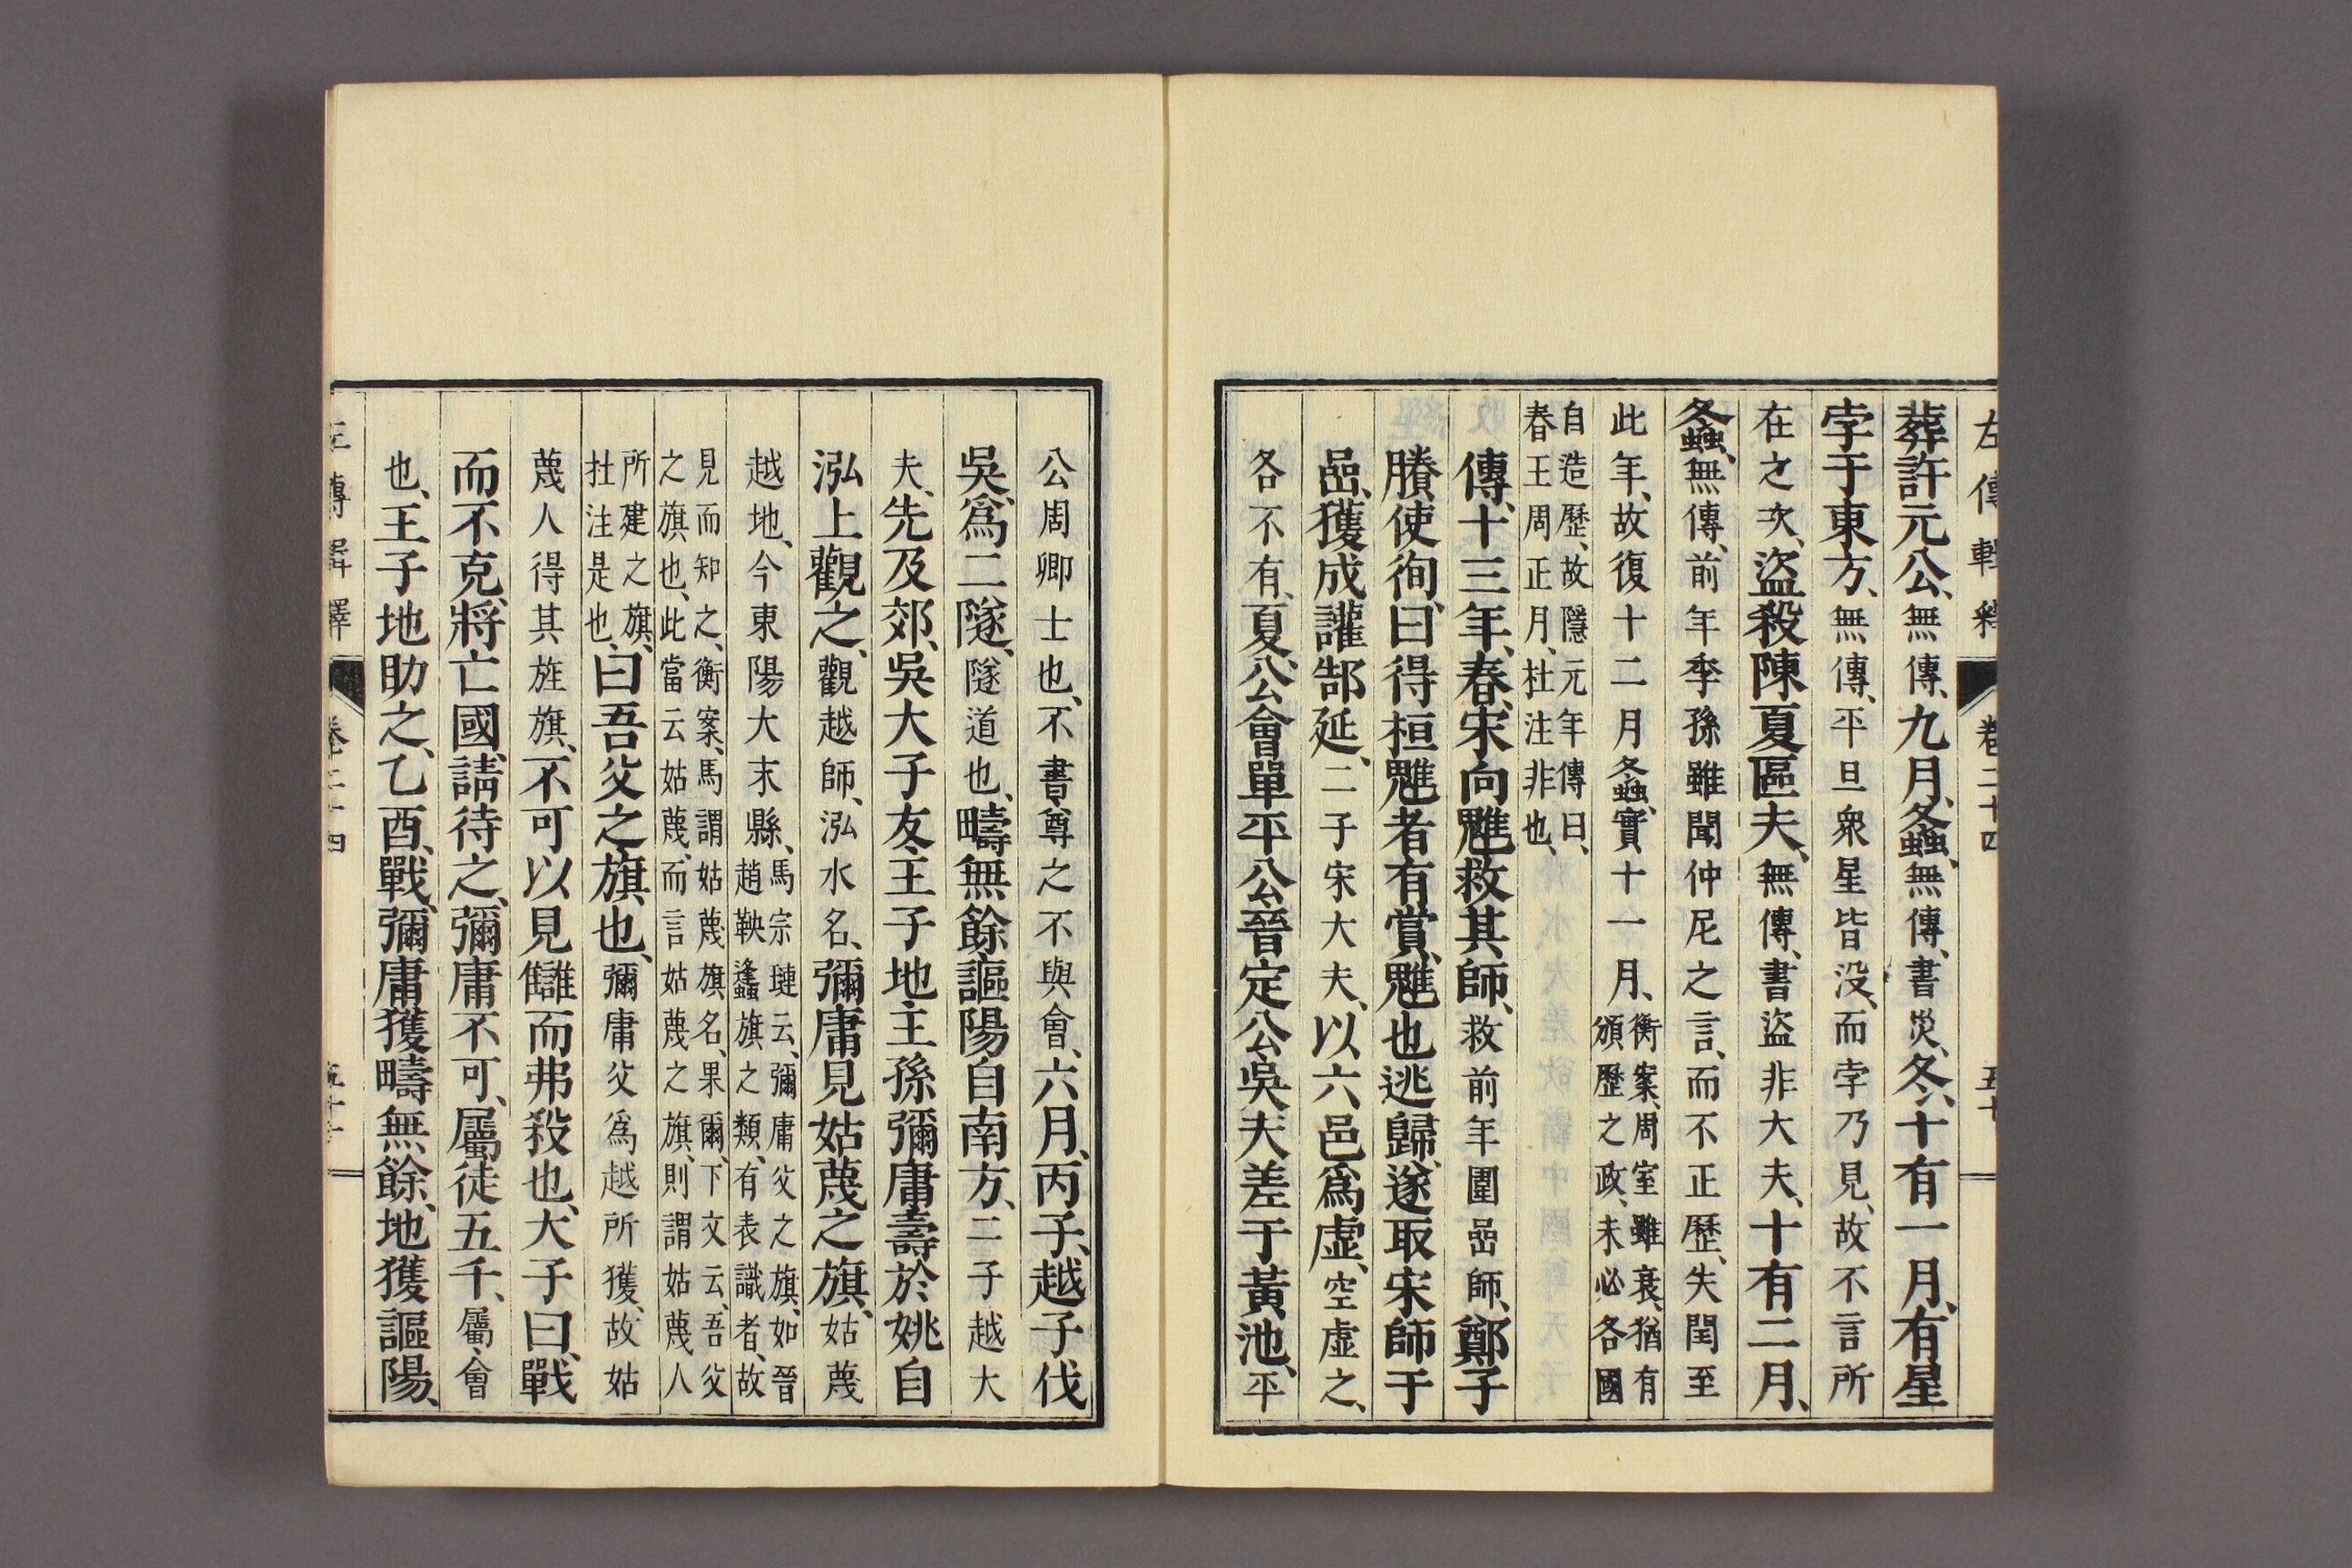 左傳輯釋 卷二十四 五十
葬許元公、無傳、九月、螽、無傳、書災、冬、十有一月、有星
孛于東方、無傳、平旦衆星皆没、而孛乃見、故不言所
在之次、盜殺陳夏區夫、無傳、書盜非大夫、十有二月、
螽、無傳、前年季孫雖聞仲尼之言、而不正歷、失閏至
此年、故復十二月螽、實十一月、衡案、周室雖衰、猶有頒歷之政、未必各國
自造歷、故隱元年傳曰、春王周正月、杜注非也、
傳、十三年、春、宋向魋救其師、救前年圍嵒師、鄭子
賸使徇曰、得桓魋者有賞、魋也逃歸、遂取宋師于
嵒、獲成讙郜延、二子宋大夫、以六邑爲虛、空虛之、
各不有、夏、公會單平公晉定公吳夫差于黃池、平
公周卿士也、不書、尊之不與會、六月、丙子、越子伐
吳、爲二隧、隧道也、疇無餘謳陽自南方、二子越大
夫、先及郊、吳大子友、王子地、王孫彌庸壽於姚自
泓上觀之、觀越師、泓水名、彌庸見姑蔑之旗、姑蔑
越地、今東陽大末縣、馬宗璉云、彌庸父之旗、如晉趙鞅蠭旗之類、有表識者、故
見而知之、衡案、馬謂姑蔑旗名、果爾、下文云、吾父之旗也、此當云姑蔑、而言姑蔑之旗、則謂姑蔑人
所建之旗、杜注是也、曰、吾父之旗也、彌庸父爲越所獲、故姑
蔑人得其旌旗、不可以見讎而弗殺也、大子曰、戰
而不克、將亡國、請待之、彌庸不可、屬徒五千、屬、會
也、王子地助之、乙酉、戰、彌庸獲疇無餘、地獲謳陽、
左傳輯釋 卷二十四